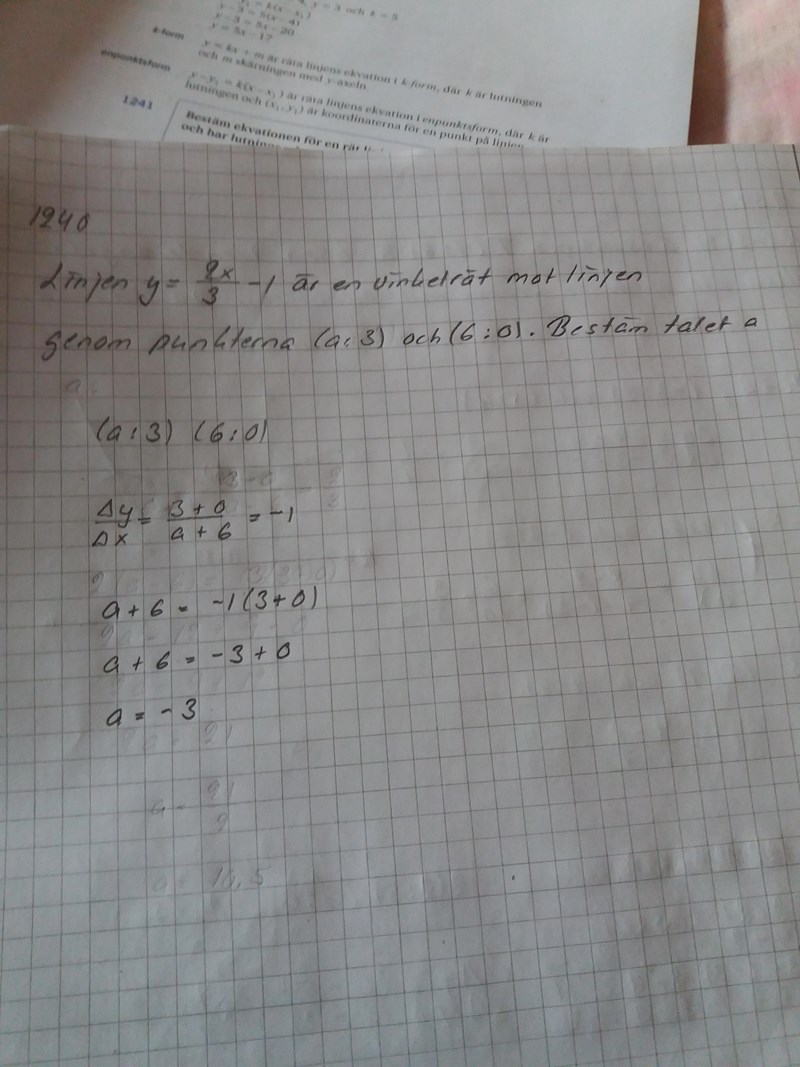 y-3=5(x-4)
y-3=5x-20
y=5x-17
k-form
y=kx+m är räta linjens ekvation i k-form, där k är lutningen
och m skärningen med y-axeln.
enpunktsform
y-y₁=k(x-x₁) är räta linjens ekvation i enpunktsform, där k är
lutningen och (x₁, y₁) är koordinaterna för en punkt på linjen.
1241
Bestäm ekvationen för en rät
och har
1240
Linjen y= 2x/3 -1 är en vinkelrät mot linjen
genom punkterna (a:3) och (6:0). Bestäm talet a
(a:3) (6:0)
Δy/Δx = 3+0/a+6 = -1
a+6 = -1(3+0)
a+6 = -3+0
a = -3